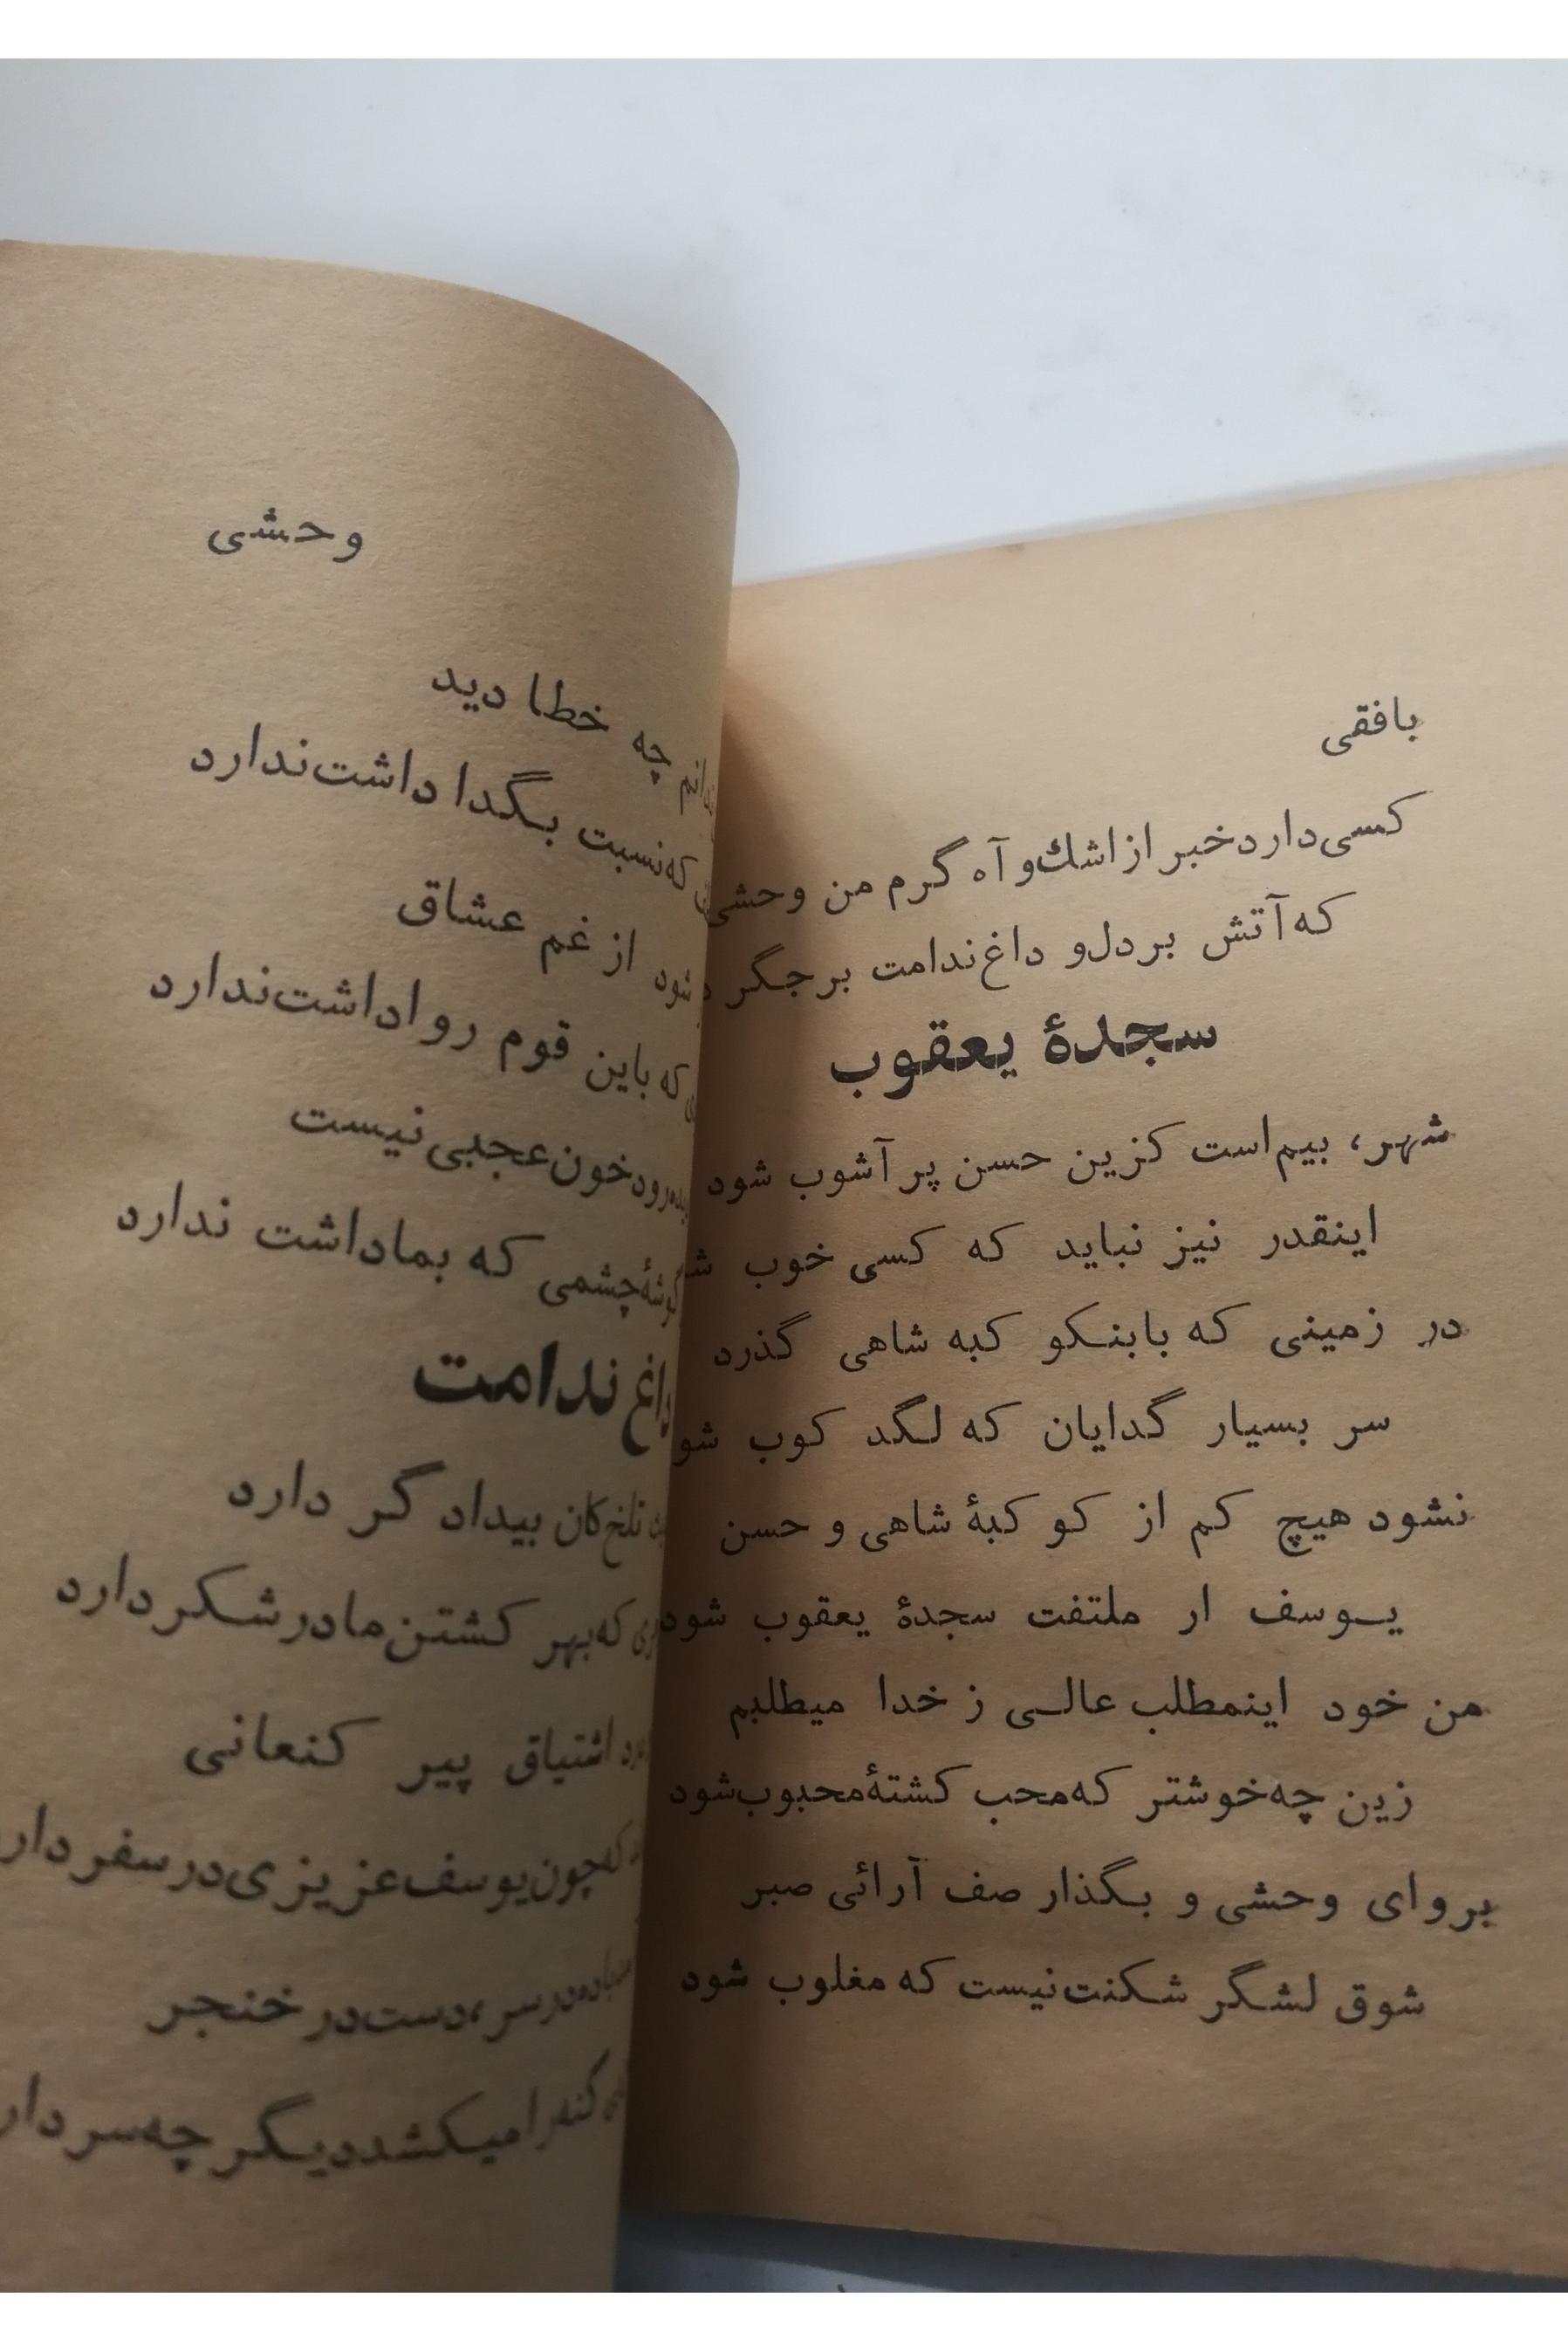 بافقی
کسی‌دارد خبر از اشك و آه گرم من وحشی
که آتش بر دل و داغ ندامت بر جگر
سجدهٔ یعقوب
شهر، بیم است کزین حسن پر آشوب شود
اینقدر نیز نباید که کسی خوب
در زمینی که بابنکو کبه شاهی گذرد
سر بسیار گدایان که لگد کوب شو
نشود هیچ کم از کو کبهٔ شاهی و حسن
یوسف ار ملتفت سجدهٔ یعقوب شود
من خود اینمطلب عالی ز خدا میطلبم
زین چه خوشتر که محب کشتهٔ محبوب شود
برو ای وحشی و بگذار صف آرائی صبر
شوق لشگر شکنت نیست که مغلوب شود
وحشی
چه خطا دید
که نسبت بگدا داشت ندارد
شود از غم عشاق
که باین قوم روا داشت ندارد
رود خون عجبی نیست
گوشهٔ چشمی که بما داشت ندارد
داغ ندامت
تلخ کان بیداد گر دارد
که بهر کشتن ما در شکر دارد
اشتیاق پیر کنعانی
که چون یوسف عزیزی در سفر دار
در سر، دست در خنجر
را میکشد دیگر چه سر دار